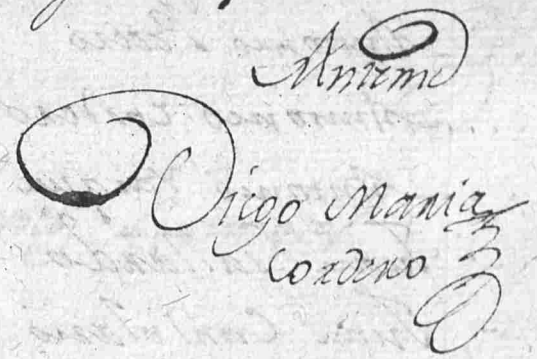 Antemi
Diego Maria
Cordero